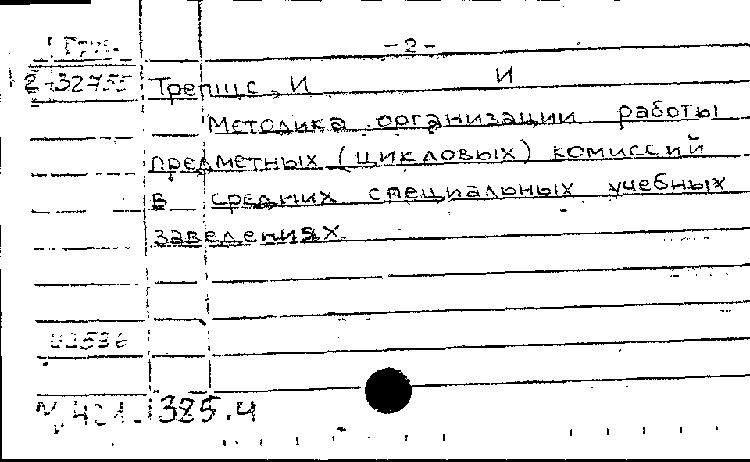 -2-
2-32755 Трепщс, И И
Методика организации работы
предметных (цикловых) комиссий
в средних специальных учебных
заведениях.
385.4